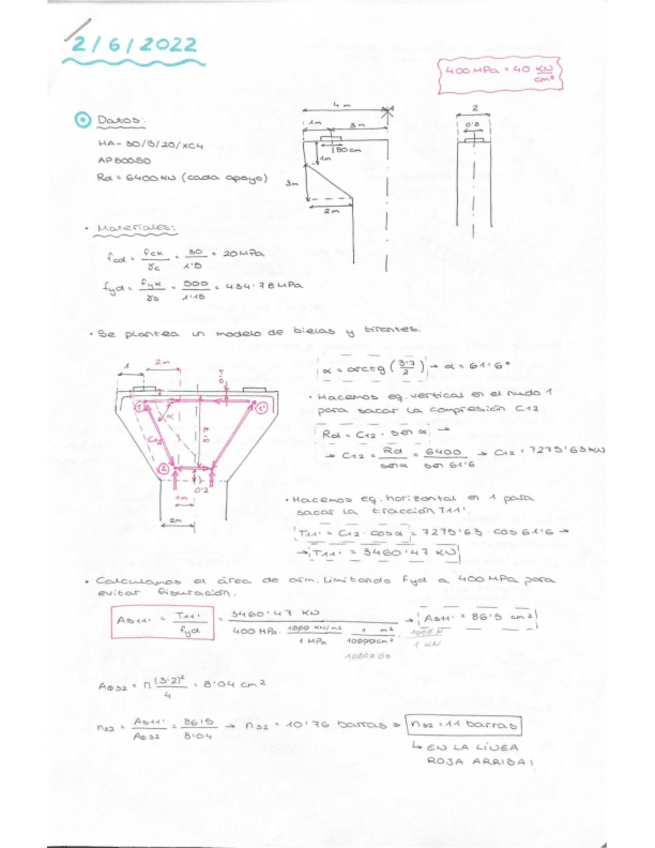 2/6/2022
400 MPa = 40 KN/cm²
Datos:
HA-30/B/20/XC4
AP500SD
Rd = 6400 KN (cada apoyo)
4 m
1m 3m
80cm
1m
3m
2m
2
0'8
• Materiales:
fcd = fck/γc = 30/1'5 = 20 MPa
fyd = fyk/γs = 500/1'15 = 434'78 MPa
• Se plantea un modelo de bielas y tirantes.
1 2m
1 1'
α
C12
3'7
2
0'2
1m
2m
α = arctg (3'7/2) → α = 61'6°
• Hacemos eq. vertical en el nudo 1
para sacar la compresión C12.
Rd = C12 · sen α →
→ C12 = Rd/senα = 6400/sen 61'6 → C12 = 7275'63 KN
• Hacemos eq. horizontal en 1 para
sacar la tracción T11'.
T11' = C12 · cosα = 7275'63 · cos 61'6 →
→ T11' = 3460'47 KN
• Calculamos el área de arm. limitando fyd a 400 MPa para
evitar fisuración.
As11' = T11'/fyd = 3460'47 KN / 400 MPa · 1000 KN/m²/1 MPa · 1 m²/10000cm² → As11' = 86'5 cm²
1000 N
1 KN
AØ32 = π (3'2)²/4 = 8'04 cm²
n32 = As11'/AØ32 = 86'5/8'04 → n32 = 10'76 barras ≈ n32 = 11 barras
↳ EN LA LÍNEA
ROJA ARRIBA!